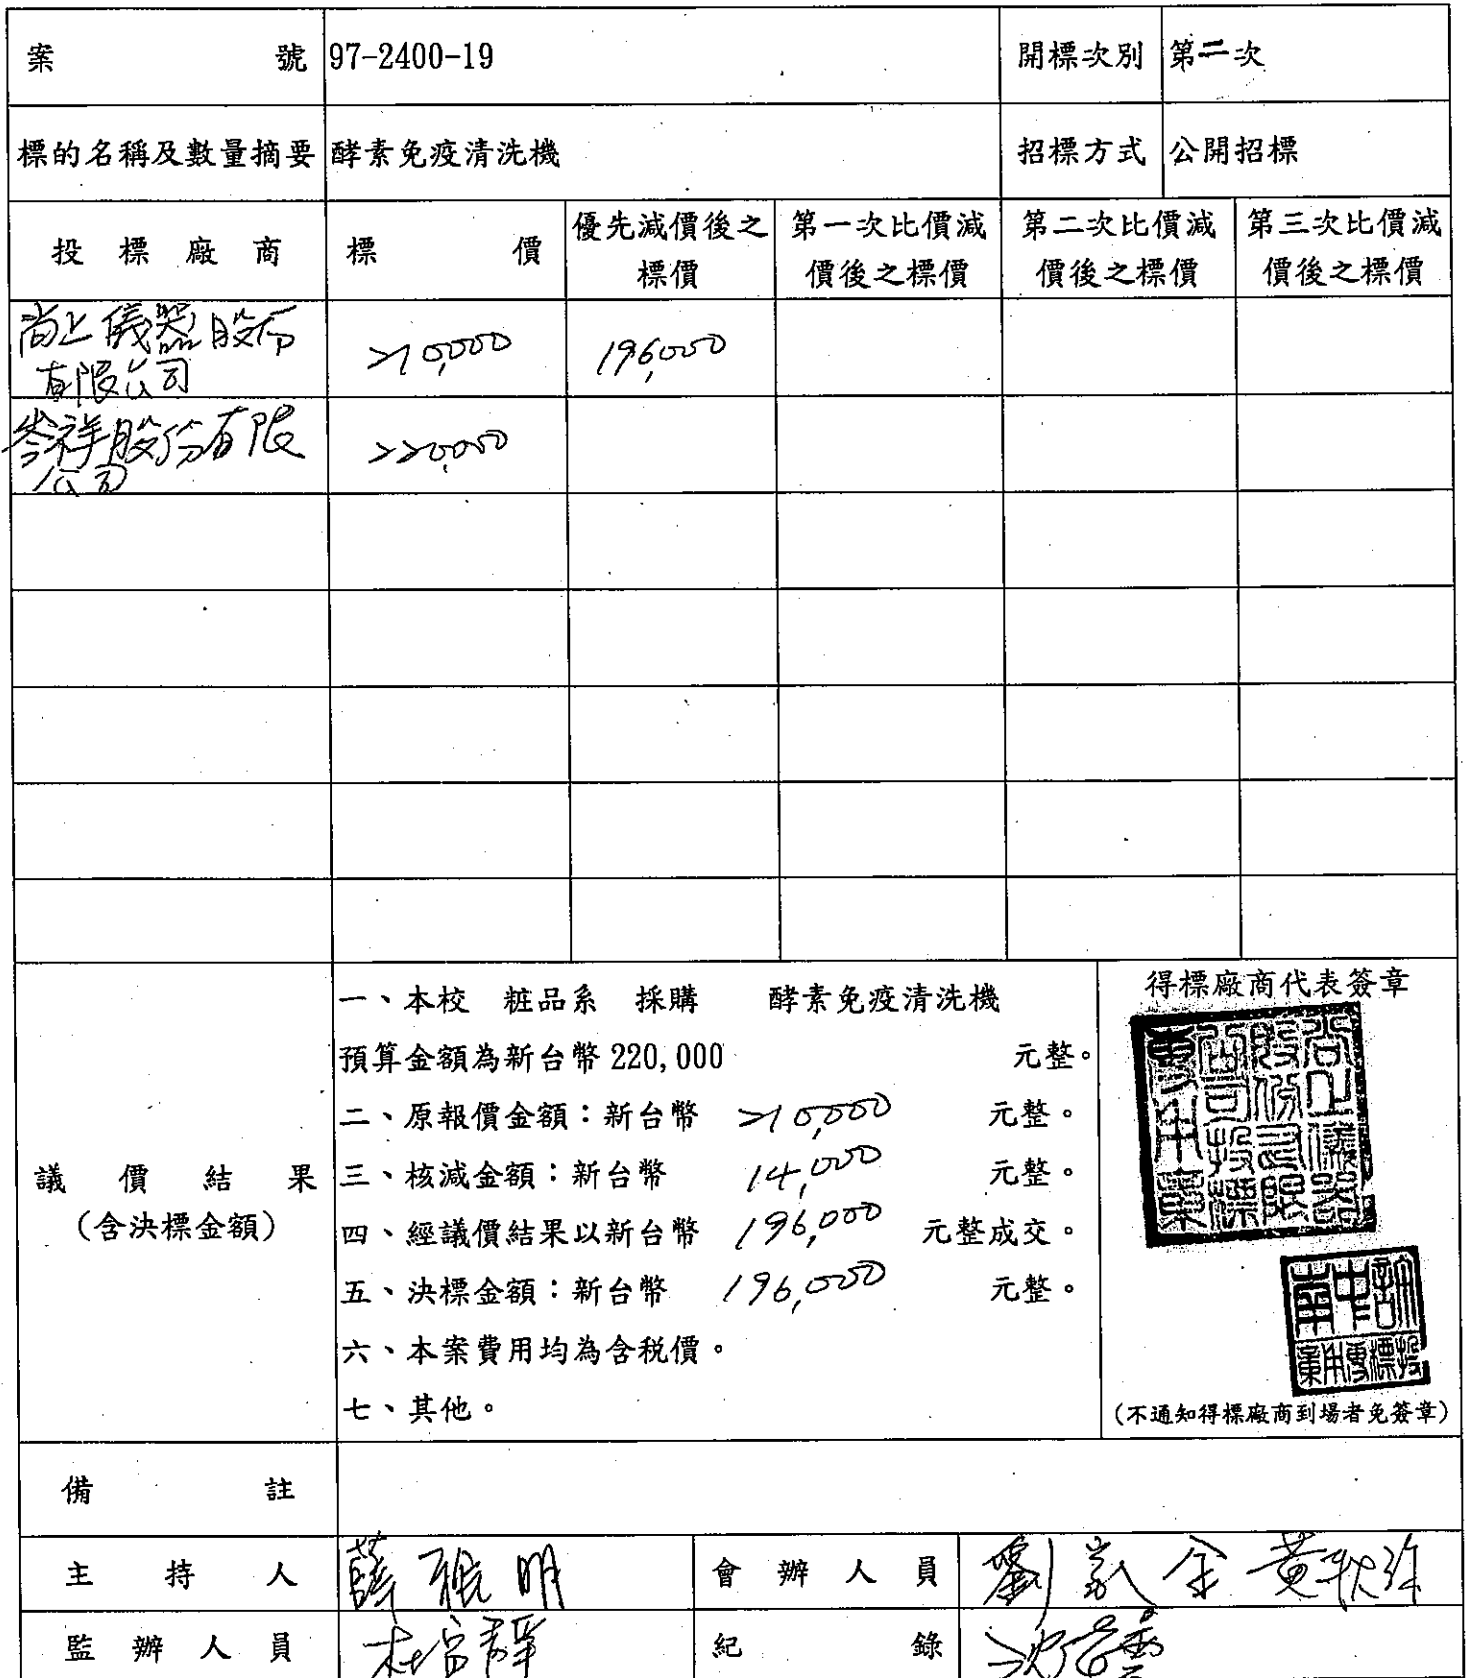 案 號 97-2400-19 開標次別 第二次
標的名稱及數量摘要 酵素免疫清洗機 招標方式 公開招標
投標廠商 標價 優先減價後之標價 第一次比價減價後之標價 第二次比價減價後之標價 第三次比價減價後之標價
尚上儀器股份 210,000 196,000
有限公司
岑祥股份有限 220,000
公司
得標廠商代表簽章
一、本校 粧品系 採購 酵素免疫清洗機
預算金額為新台幣 220,000 元整。
二、原報價金額：新台幣 210,000 元整。
議價結果 三、核減金額：新台幣 14,000 元整。
（含決標金額） 四、經議價結果以新台幣 196,000 元整成交。
五、決標金額：新台幣 196,000 元整。
六、本案費用均為含稅價。
七、其他。
尚上儀器
股份有限
公司投標
專用章
投標專用章
（不通知得標廠商到場者免簽章）
備註
主持人 薛雅明 會辦人員
監辦人員 紀錄